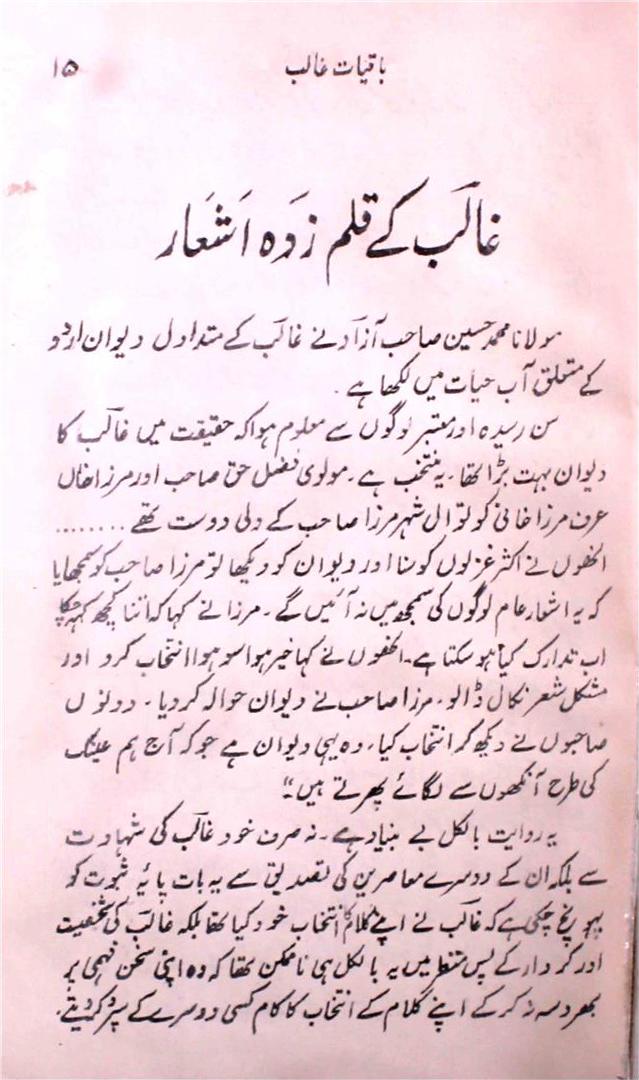 باقیات غالب ۱۵
غالب کے قلم زدہ اشعار
مولانا محمد حسین صاحب آزاد نے غالب کے متداول دیوان اردو
کے متعلق آب حیات میں لکھا ہے۔
سن رسیدہ اور معتبر لوگوں سے معلوم ہوا کہ حقیقت میں غالب کا
دیوان بہت بڑا تھا۔ یہ منتخب ہے۔ مولوی فضل حق صاحب اور مرزا خاں
عرف مرزا خانی کوتوال شہر مرزا صاحب کے دلی دوست تھے ........
انھوں نے اکثر غزلوں کو سنا اور دیوان کو دیکھا تو مرزا صاحب کو سمجھایا
کہ یہ اشعار عام لوگوں کی سمجھ میں نہ آئیں گے۔ مرزا نے کہا کہ اتنا کچھ کہہ چکا
اب تدارک کیا ہو سکتا ہے۔ انھوں نے کہا خیر ہوا سو ہوا انتخاب کرو اور
مشکل شعر نکال ڈالو۔ مرزا صاحب نے دیوان حوالہ کر دیا۔ دونوں
صاحبوں نے دیکھ کر انتخاب کیا۔ وہ یہی دیوان ہے جو کہ آج ہم عینک
کی طرح آنکھوں سے لگائے پھرتے ہیں۔“
یہ روایت بالکل بے بنیاد ہے۔ نہ صرف خود غالب کی شہادت
سے بلکہ ان کے دوسرے معاصرین کی تصدیق سے یہ بات پایۂ ثبوت کو
پہونچ چکی ہے کہ غالب نے اپنے کلام کا انتخاب خود کیا تھا بلکہ غالب کی شخصیت
اور کردار کے پس منظر میں یہ بالکل ہی ناممکن تھا کہ وہ اپنی سخن فہمی پر
بھروسہ نہ کر کے اپنے کلام کے انتخاب کا کام کسی دوسرے کے سپرد کر دیتے۔